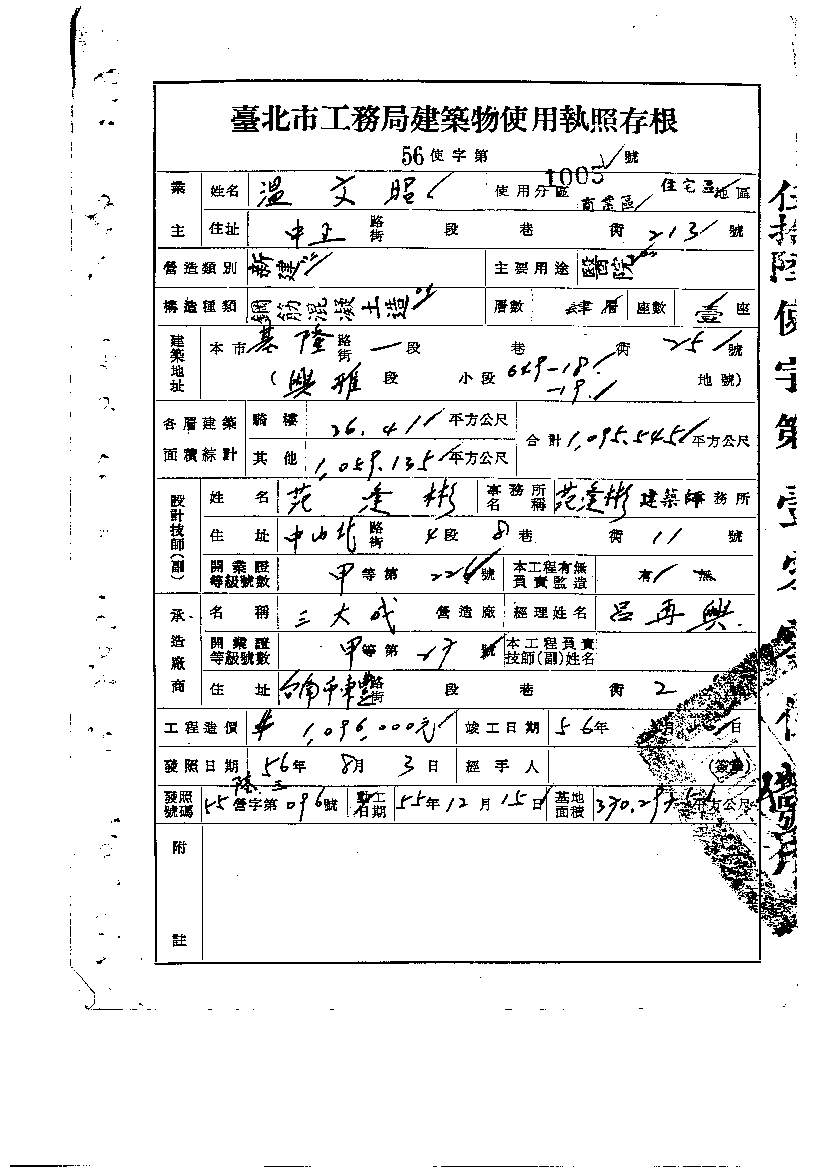 臺北市工務局建築物使用執照存根
56使字第1005號
業主 姓名 溫文昭 使用分區 商業區 住宅區 地區
住址 中正 路街 段 巷 街 213 號
營造類別 新建 主要用途 醫院
構造種類 鋼筋混凝土造 層數 肆層 座數 壹座
建築地址 本市 基隆 路街 一段 巷 街 25 號
(興雅段 小段 649-18 -19 地號)
各層建築面積綜計 騎樓 26.41 平方公尺 合計 1,095.545 平方公尺
其他 1,069.135 平方公尺
設計技師(副) 姓名 范逢彬 事務所名稱 范逢彬建築師事務所
住址 中山北 路街 4段 8巷 街 11 號
開業證等級號數 甲等第 226 號 本工程有無負責監造 有 無
承造廠商 名稱 三大成 營造廠 經理姓名 呂再興
開業證等級號數 甲等第 17 號 本工程負責技師(副)姓名
住址 台南市東豐 路街 段 巷 街 2
工程造價 1,096,000元 竣工日期 56年 月 日
發照日期 56年 8月 3日 經手人 (簽章)
發照號碼 55營字第096號 期 55年12月15日 基地面積 330.29 平方公尺
附註
伍拾陸使字第壹